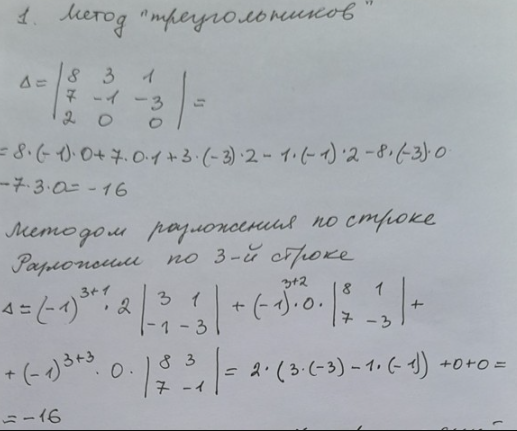 1. Метод "треугольников"
Δ = | 8 3 1 |
| 7 -1 -3 | =
| 2 0 0 |
= 8·(-1)·0+7·0·1+3·(-3)·2-1·(-1)·2-8·(-3)·0
-7·3·0=-16
Методом разложения по строке
Разложим по 3-й строке
Δ=(-1)^{3+1}·2 | 3 1 | + (-1)^{3+2}·0· | 8 1 | +
| -1 -3 | | 7 -3 |
+(-1)^{3+3}·0· | 8 3 | = 2·(3·(-3)-1·(-1)) +0+0=
| 7 -1 |
=-16